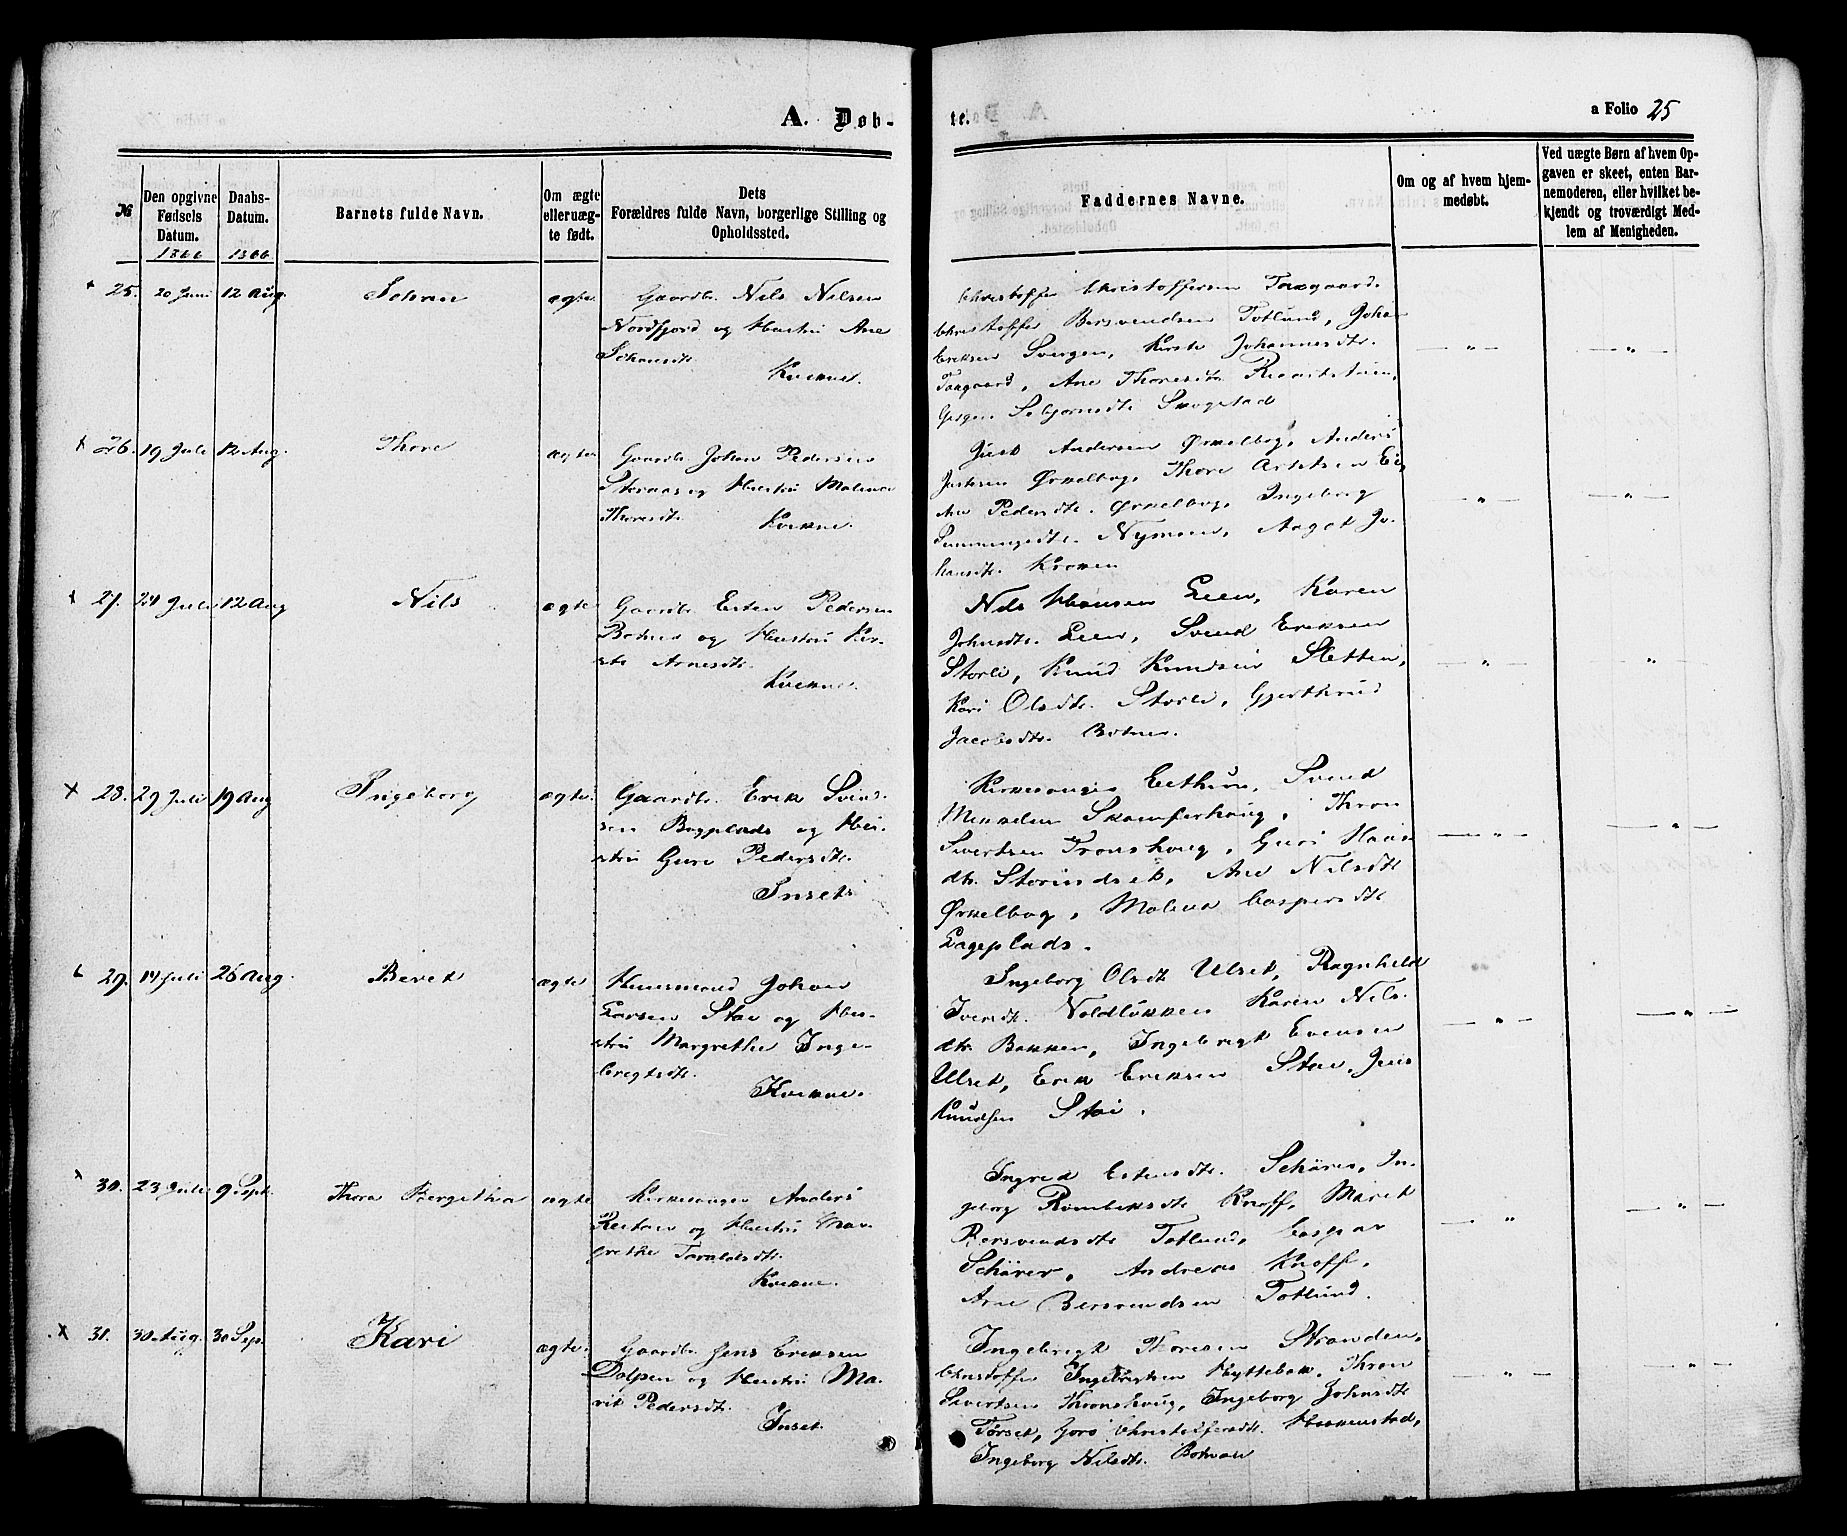 A. Døb-
te.
a Folio 25
№
Den opgivne Fødsels Datum.
1866
Daabs-Datum.
1866.
Barnets fulde Navn.
Om ægte elleruæg-te født.
Dets Forældres fulde Navn, borgerlige Stilling og Opholdssted.
Faddernes Navne.
Om og af hvem hjem-medøbt.
Ved uægte Børn af hvem Op-gaven er skeet, enten Bar-nemoderen, eller hvilket be-kjendt og troværdigt Med-lem af Menigheden.
25. 20 Juni 12 Aug. Johan ægte.
Gaardbr. Nils Nilsen
Nordfjord og Hustru Ane
Johansdtr.
Kvikne.
Christoffer Christoffersen Taxgaard.
Christoffer Bersvendsen Totlund, Johan
Eriksen Svergen, Kirsti Johannesdtr.
Taxgaard, Ane Thoresdtr.
Sebjørnsdtr Skogstad
— " — — " —
26. 19 Juli 12 Aug. Thore ægte
Gaardbr. Johan Pedersen
Storaas og Hustru Malena
Thoresdtr. Kvikne.
Just Andersen Ørkelbog, Anders
Justsen Ørkelbog, Thore
Ane Pedersdtr. Ørkelbog, Ingeborg
Nymoen, Aagot Jo-
hansdtr. Kroken
— " — — " —
27. 24 Juli 12 Aug Nils ægte
Gaardbr. Esten Pedersen
Botner og Hustru Kir-
sti Arnesdtr.
Kvikne.
Nils Hansen Leen, Karen
Johnsdtr. Leen, Svend Eriksen
Storli, Knud Knudsen Sletten,
Kari Olsdtr. Storli, Gjerthrud
Jacobsdtr. Botner.
— " — "
28. 29 Juli 19 Aug Ingeborg ægte.
Gaardbr. Erik Svend-
sen Bagplads og Hu-
stru Guri Pedersdtr.
Inset.
Kirkesanger Eethun, Svend
Mikkelsen Skamferhaug, Thron
Sivertsen Tronshoug, Guri Hans
dtr. Storindset, Ane Nilsdtr
Ørkelbog, Malena Caspersdtr
Bagplads.
— " — — " —
29. 14 Juli 26 Aug. Beret ægte
Huusmand Johan
Larsen Stai og Hu-
stru Margrethe Inge-
brigtsdtr.
Kvikne.
Ingeborg Olsdtr Ulset, Ragnhild
Ivensdtr. Voldløkken Karen Nils-
dtr. Bakken, Ingebrigt Evensen
Ulset, Erik Eriksen Stai, Jens
Knudsen Stai.
— " — — " —
30. 23 Juli 9 Sept. Thora Bergitha ægte
Kirkesanger Anders
Restan og Hustru Mar-
grethe Taraldsdtr.
Kvikne.
Ingrid Estensdtr. Schärer, In-
geborg Knoff, Marit
Bersvendsdtr Totlund, Caspar
Schärer, Andreas Knoff,
Arne Bersvendsen Totlund.
— " — — " —
31. 30. Aug. 30 Sep. Kari ægte.
Gaardbr. Jens Eriksen
Dolpen og Hustru Ma-
rit Pedersdtr.
Inset.
Ingebrigt Thoresen Stranden,
Christoffer Ingebrigtsen Hyttebak, Thron
Sivertsen Thronshoug, Ingeborg Johnsdtr
Tørset, Goro Christofersdtr. Haakenstad,
Ingeborg Nilsdtr. Botnan
— " — — " —